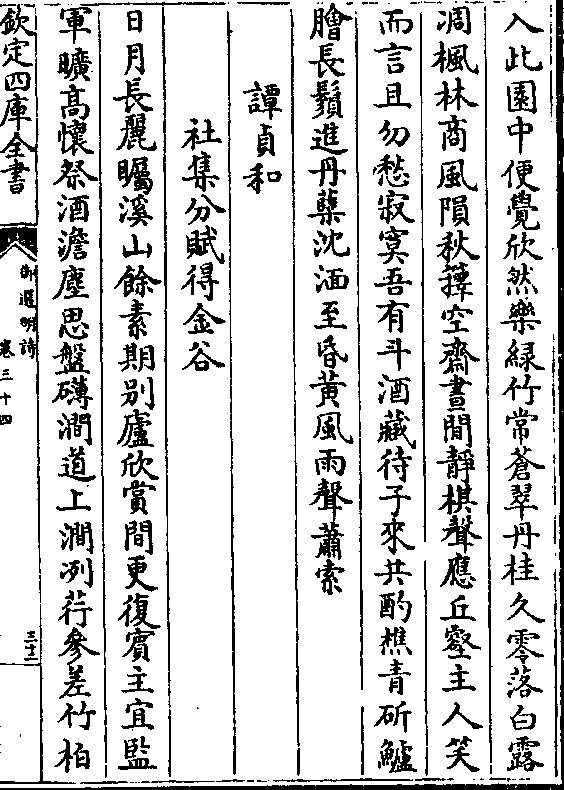 入此園中便覺欣然樂綠竹常蒼翠丹桂久零落白露
凋楓林商風隕秋蘀空齋晝閒靜棋聲應丘壑主人笑
而言且勿愁寂寞吾有斗酒藏待子來共酌樵青斫鱸
膾長鬚進丹蘗沈湎至昏黃風雨聲蕭索
譚貞和
社集分賦得金谷
日月長麗矚溪山餘素期别廬欣賞間更復賓主宜監
軍曠高懷祭酒澹塵思盤礴澗道上澗冽荇參差竹柏
欽定四庫全書
御選明詩
卷三十四
三十二